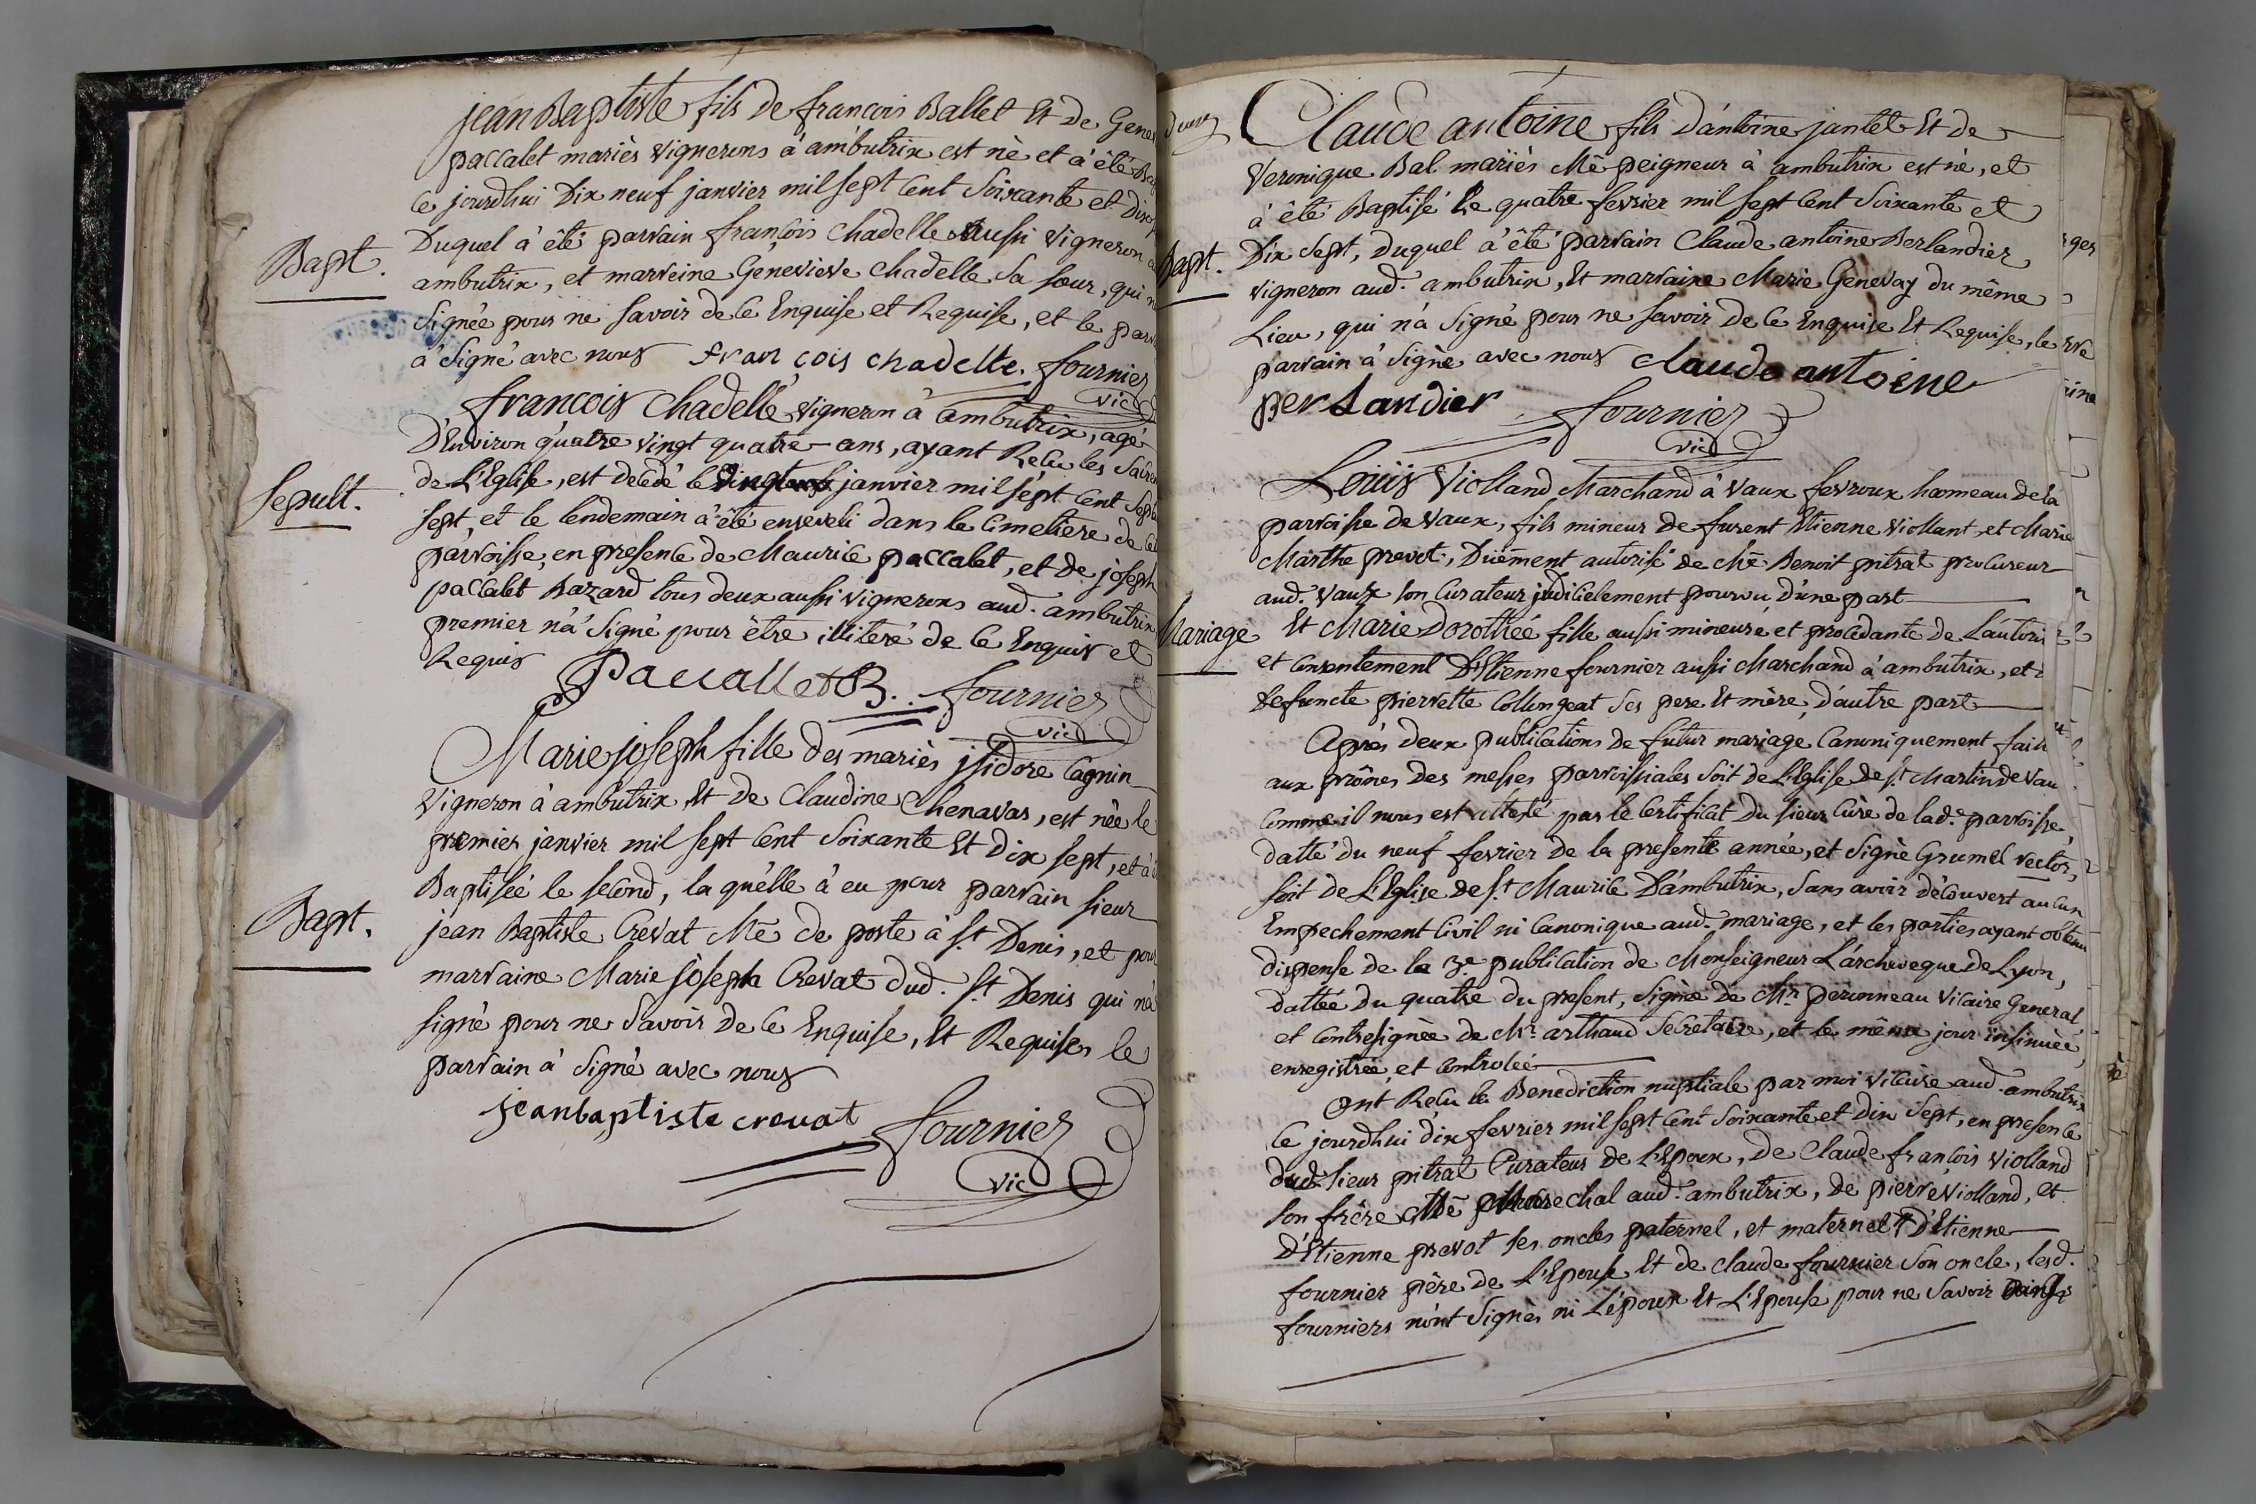 jean Baptiste fils de francois Ballet Et De Gene
paccalet mariès vignerons à ambutrix est nè et à été Ba
ce jourdhui Dix neuf janvier mil sept Cent Soixante et Dix
Bapt.
Duquel à été parrain françois chadelle aussi vigneron
ambutrix, et marreine Genevieve chadelle Sa sœur, qui n
Signée pour ne savoir de ce Enquise et Requise, et le parr
à Signé avec nous fran çois chadelle. fournier
vic
francois Chadelle vigneron à ambutrix, agé
D'Environ quatre vingt quatre ans, ayant Reçu les Sacre
Sepult.
de L'Eglise, est decedé le janvier mil sept Cent Sept
sept, et le lendemain à été enseveli dans le cimetiere de ce
parroisse, en présence de Maurice paccalet, et de joseph
paccalet Bazard tous deux aussi vignerons aud. ambutrix
premier n'à Signé pour être illiteré de ce Enquis et
Requis
Paccallet B. fournier
vic
Marie joseph fille des mariès jsidore Cagnin
vigneron à ambutrix Et de Claudine Chenavas, est nèe le
premier janvier mil sept Cent Soixante Et Dix sept, et à
Baptisée le second, la quélle à eu pour parrain sieur
Bapt.
jean Baptiste Crevat Me de poste à St Denis, et pour
marraine Marie joseph Crevat dud. St Denis qui n'à
signé pour ne savoir de ce Enquise, Et Requise, le
parrain à signé avec nous
jeanbaptiste crevat fournier
vic
Claude antoine fils D'antoine jantet Et de
Veronique Bal mariès Me peigneur à ambutrix est nè, et
à été Baptisé Le quatre fevrier mil sept Cent Soixante et
Bapt.
Dix sept, duquel à été parrain Claude antoine Berlandier
vigneron aud. ambutrix, Et marraine Marie Genevay du même
Lieu, qui n'à Signé pour ne savoir de ce Enquise Et Requise, le
parrain à Signè avec nous claude antoine
perlandier fournier
vic
Louis Violland Marchand à Vaux fevroux hameau de la
parroisse de Vaux, fils mineur de furent Etienne Viollant et Marie
Marthe prevot, Duëment autorisé de Me Benoit pitrat procureur
aud. Vaux son Curateur judicielement pourvu d'une part
Mariage
Et Marie Dorothée fille aussi mineure et procedante de L'autori
et Consentement D'Etienne fournier aussi Marchand à ambutrix, et
defuncte pierrette Collongeat Ses pere Et mère, d'autre part
Après deux publications de futur mariage Canoniquement fait
aux prônes des messes parroissiales soit de L'Eglise de St Martin de Vau
comme il nous est attesté par le Certificat du sieur Curé de lad. parroisse,
datté du neuf fevrier de la presente année, et signè Grumel rector,
soit de L'Eglise de St Maurice D'ambutrix, sans avoir découvert aucun
Empechement Civil ni Canonique aud. mariage, et les parties ayant obtenu
dispense de la 3e publication de Monseigneur L'archeveque de Lyon,
dattée du quatre du present, signée de Mr peronneau vicaire General
et contresignée de Mr. arthaud Secretaire, et le même jour insinuée,
enregistrée et Controlée
ont Reçu la Benediction nuptiale par moi vicaire aud. ambutrix
ce jourdhui dix fevrier mil sept Cent Soixante et dix sept, en presence
dud. sieur pitrat Curateur de L'Epoux, de Claude françois Violland
son frère Me Marechal aud. ambutrix, de pierre Violland, et
D'Etienne prevot ses oncles paternel, et maternel, D'Etienne
fournier père de L'Epouse Et de claude fournier Son oncle, lesd.
fourniers n'ont Signés ni L'époux Et L'Epouse pour ne Savoir